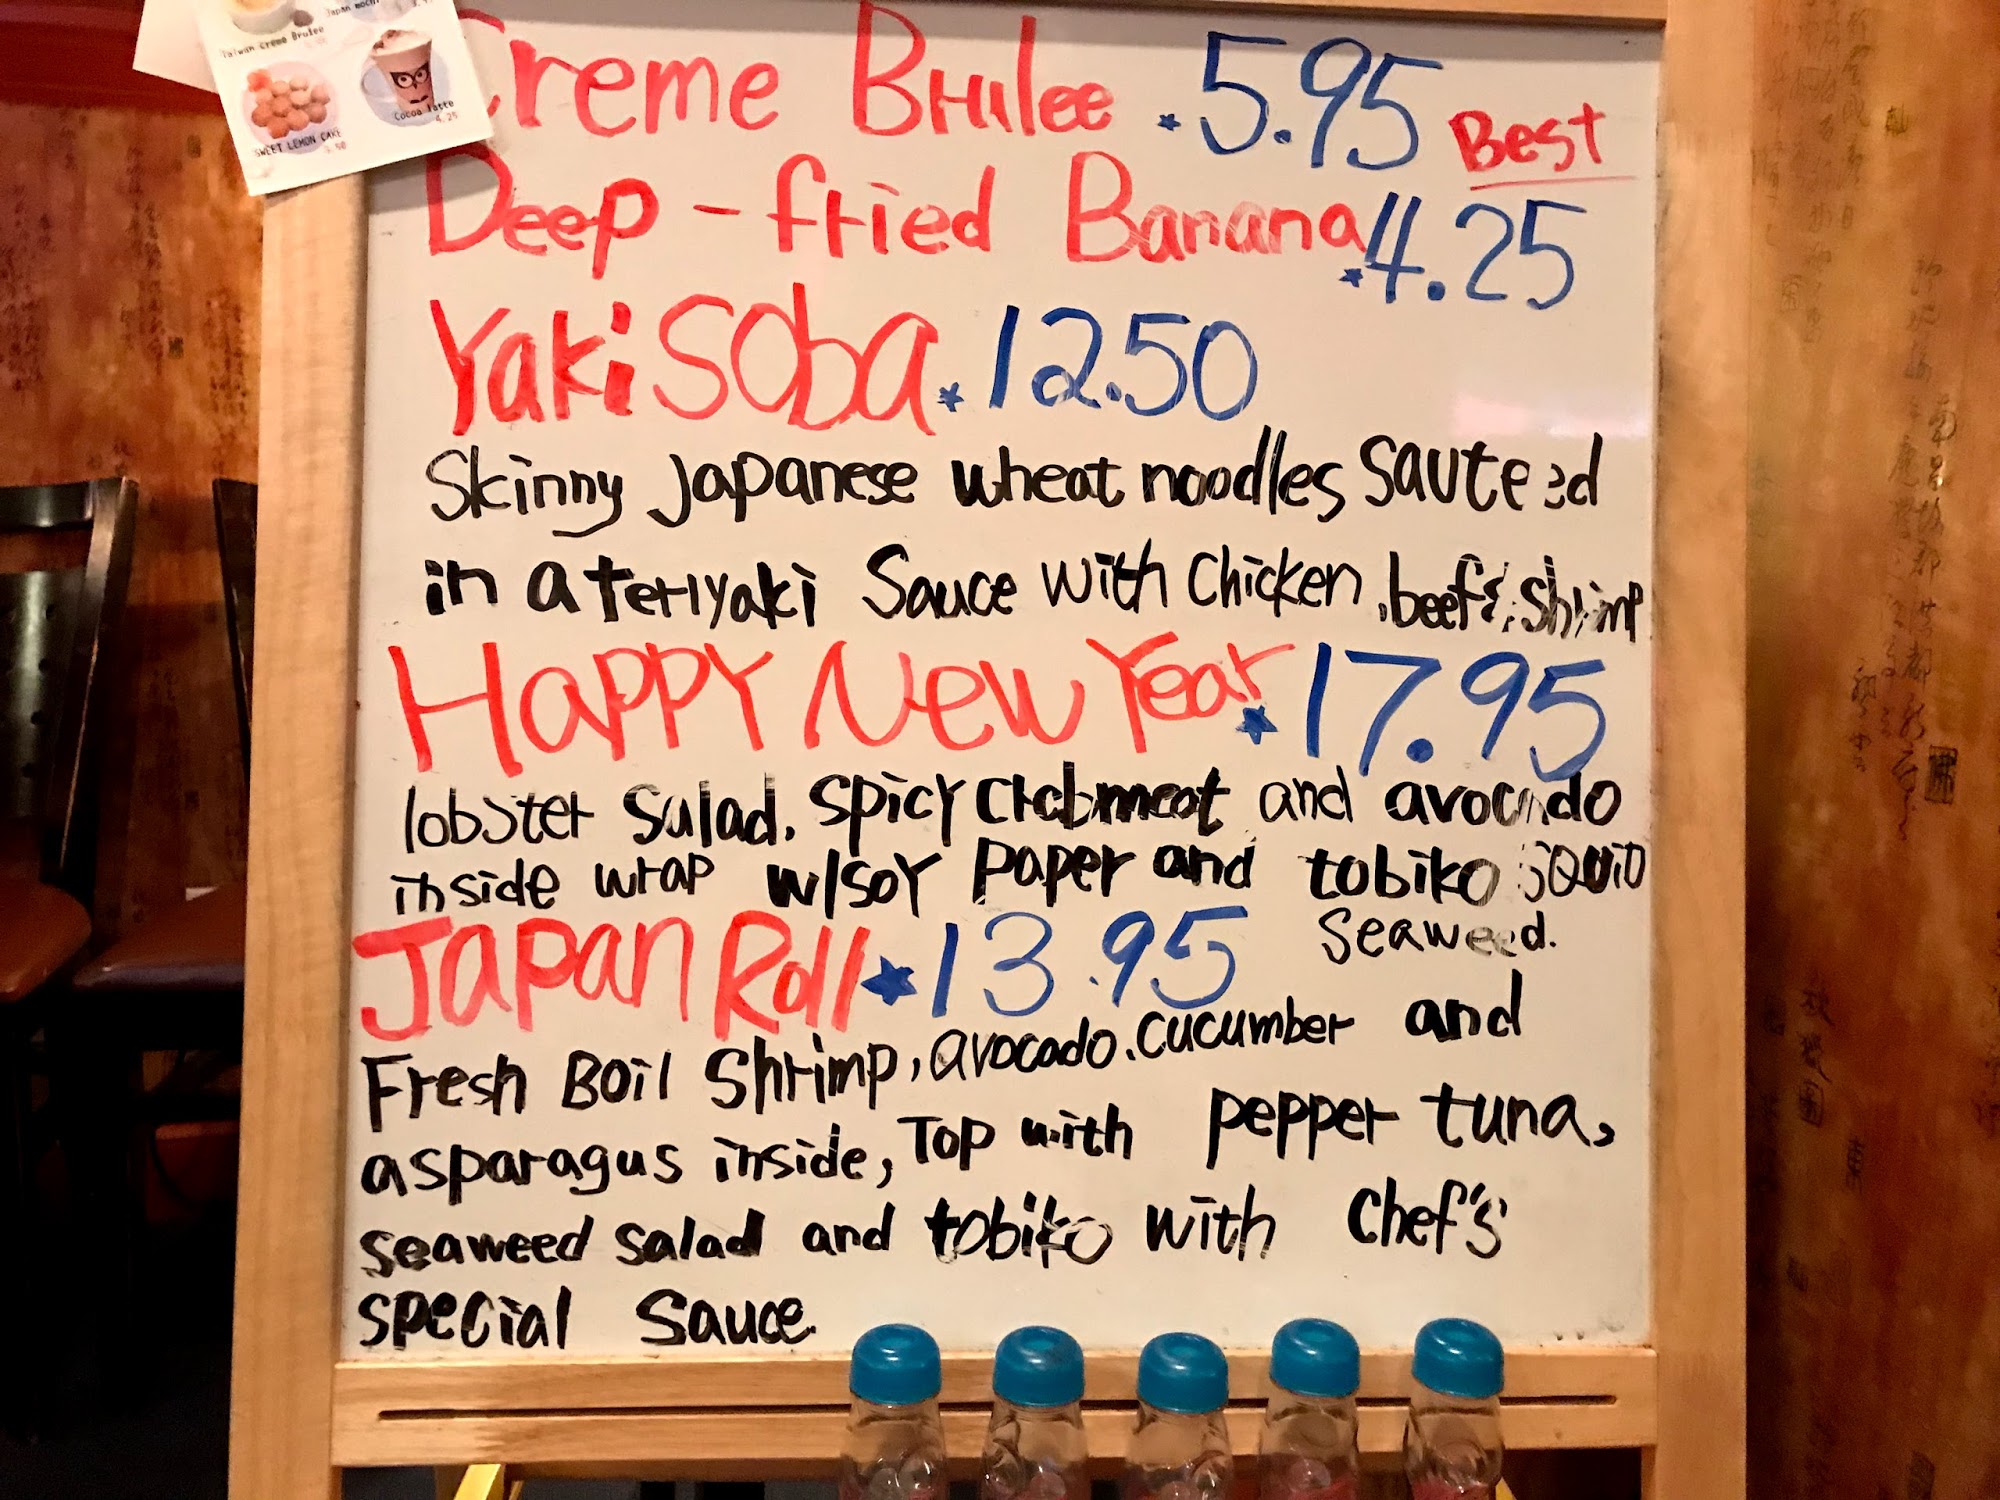 Japan mochi
Taiwan Creme Brulee
SWEET LEMON CAKE
Cocoa latte
4.25
Creme Brulee . 5.95
Best
Deep-fried Banana . 4.25
Yaki Soba . 12.50
Skinny Japanese wheat noodles Sauteed
in a teriyaki Sauce with Chicken, beef & Shrimp
Happy New Year . 17.95
lobster Salad. Spicy Crabmeat and avocado
inside wrap w/soy paper and tobiko SQUID
Seaweed.
Japan Roll ★ 13.95
Fresh Boil Shrimp, avocado. cucumber and
asparagus inside, Top with pepper tuna,
seaweed salad and tobiko with Chef's
special Sauce.